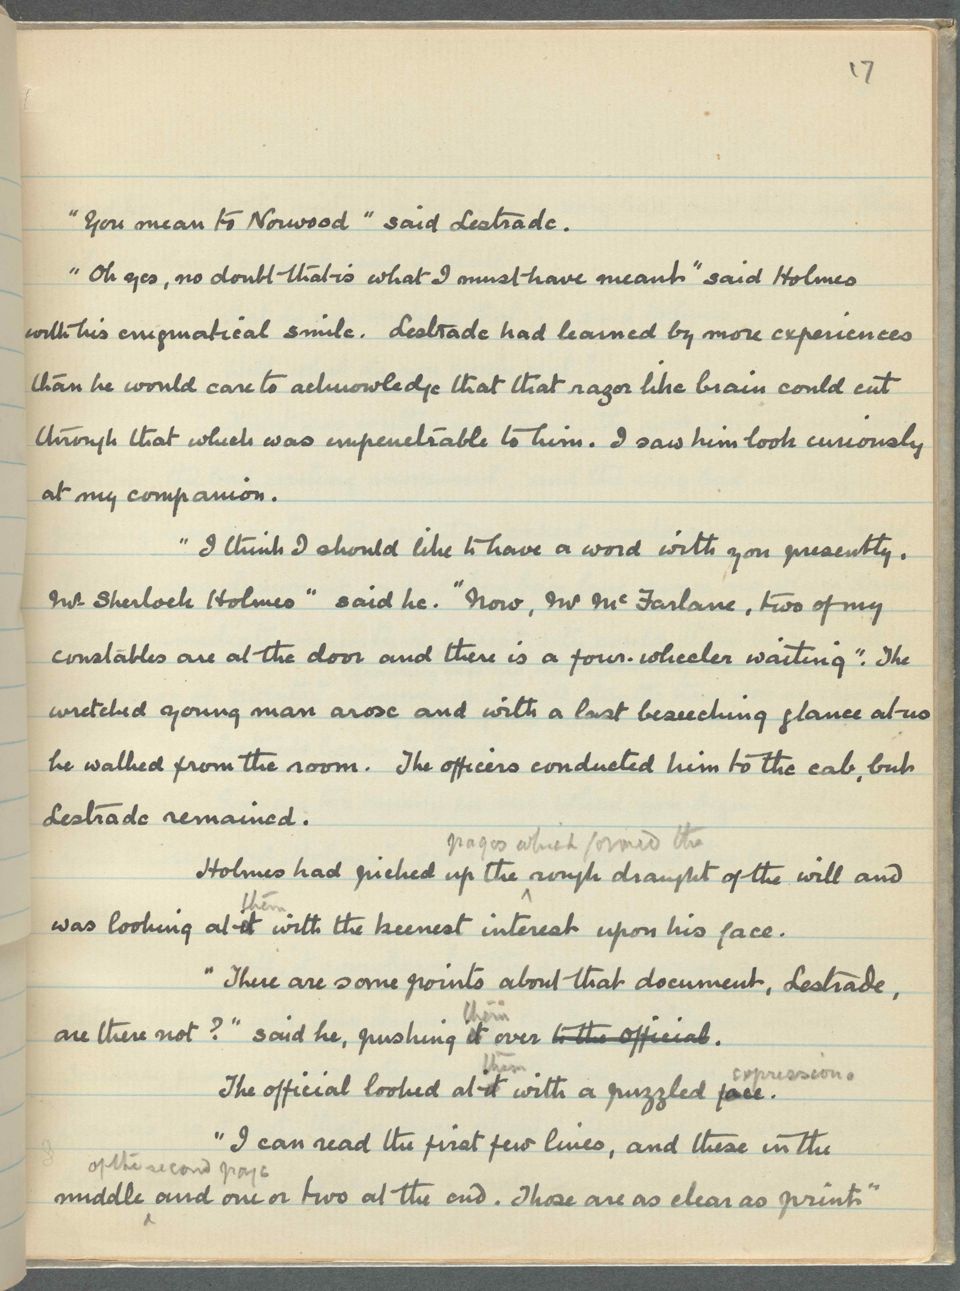 17
"You mean to Norwood" said Lestrade.
"Oh yes, no doubt that is what I must have meant" said Holmes
with his enigmatical smile. Lestrade had learned by more experiences
than he would care to acknowledge that that razor like brain could cut
through that which was impenetrable to him. I saw him look curiously
at my companion.
"I think I should like to have a word with you presently.
Mr Sherlock Holmes" said he. "Now, Mr McFarlane, two of my
constables are at the door and there is a four-wheeler waiting". The
wretched young man arose and with a last beseeching glance at us
he walked from the room. The officers conducted him to the cab, but
Lestrade remained.
pages which formed the
Holmes had picked up the rough draught of the will and
them
was looking at it with the keenest interest upon his face.
"There are some points about that document, Lestrade,
them
are there not?" said he, pushing it over to the official.
them expression.
The official looked at it with a puzzled face.
"I can read the first few lines, and these in the
of the second page
middle and one or two at the end. Those are as clear as print"